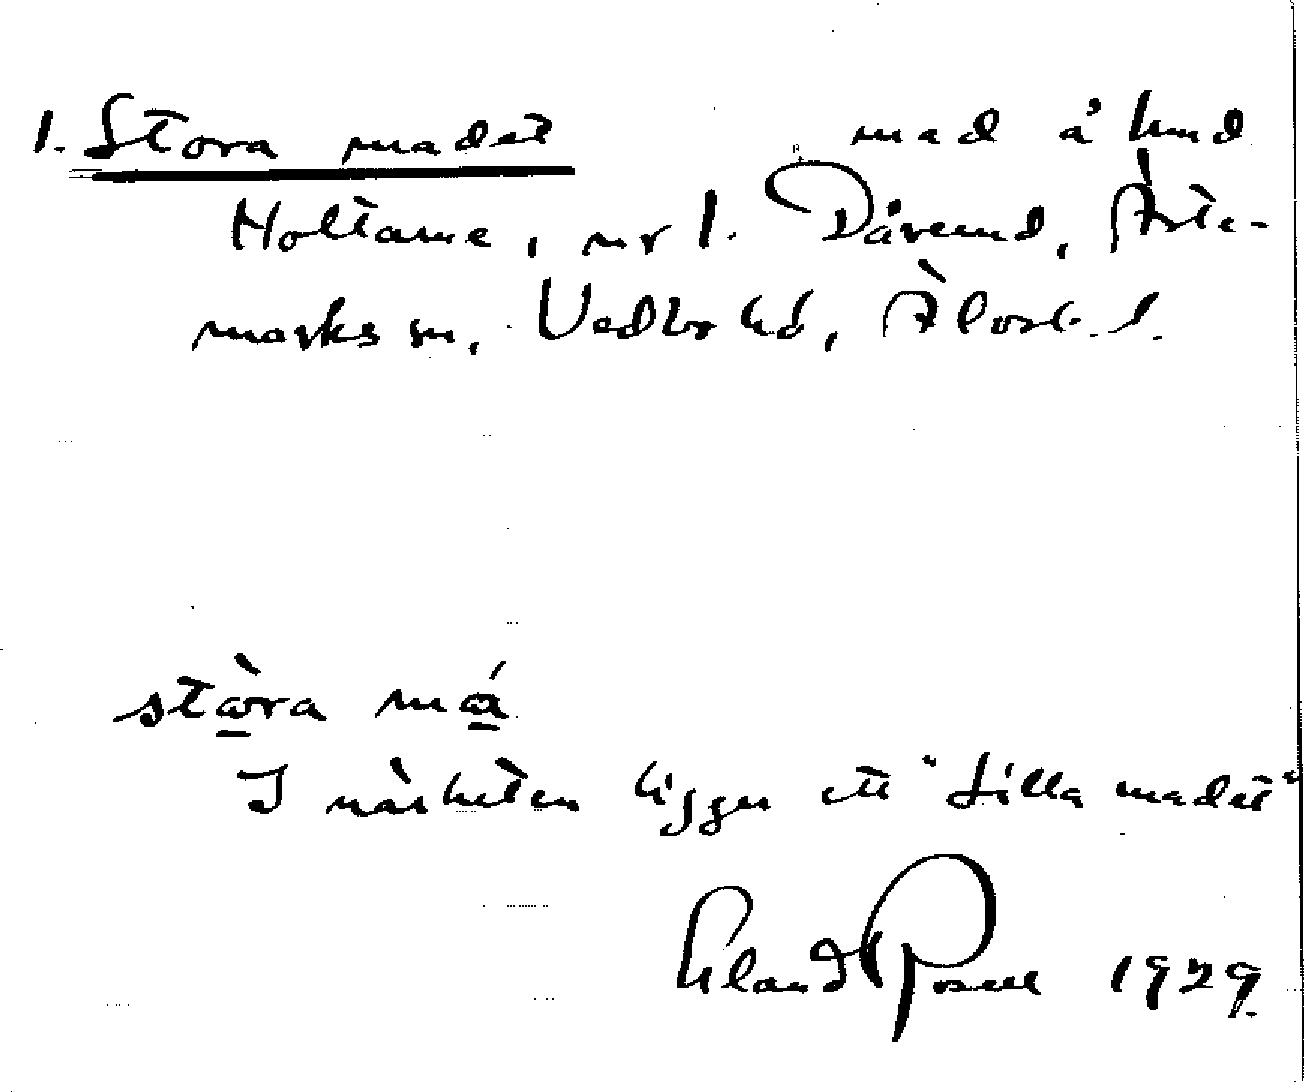 1. Stora madet mad å hmd
Holtane, nr 1. Dåverud, Ärte-
marks sn, Vedbo hd, Älvsb. l.
stòra má
I närheten ligger ett "Lilla madet"
Eland Rosell 1929.